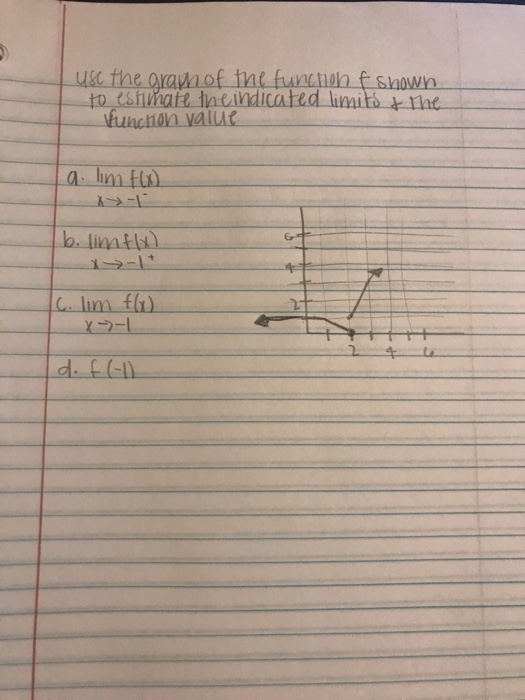 use the graph of the function f shown
to estimate the indicated limits & the
function value
a. lim f(x)
x→-1⁻
b. lim f(x)
x→-1⁺
c. lim f(x)
x→-1
d. f(-1)
6
4
2
2 4 6